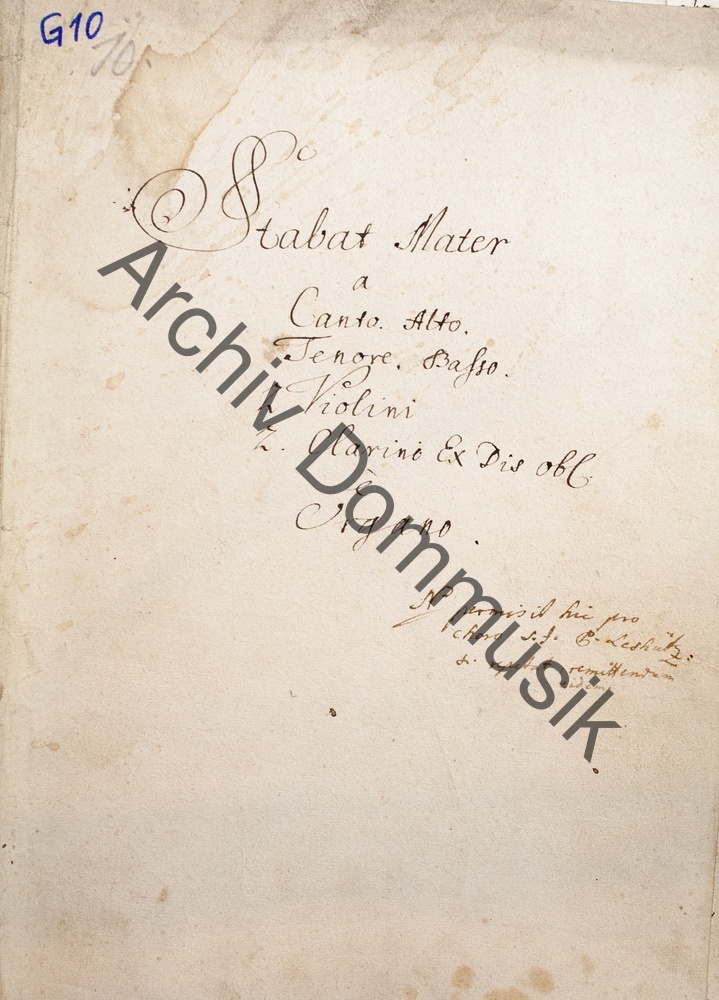 G10
10.
Stabat Mater
a
Canto. Alto.
Tenore. Basso.
2 Violini
2. Clarino Ex Dis obl.
e
Organo.
NB permisit hic pro
choro s.J. P. Leshütz:
si remittendum
Archiv Dommusik